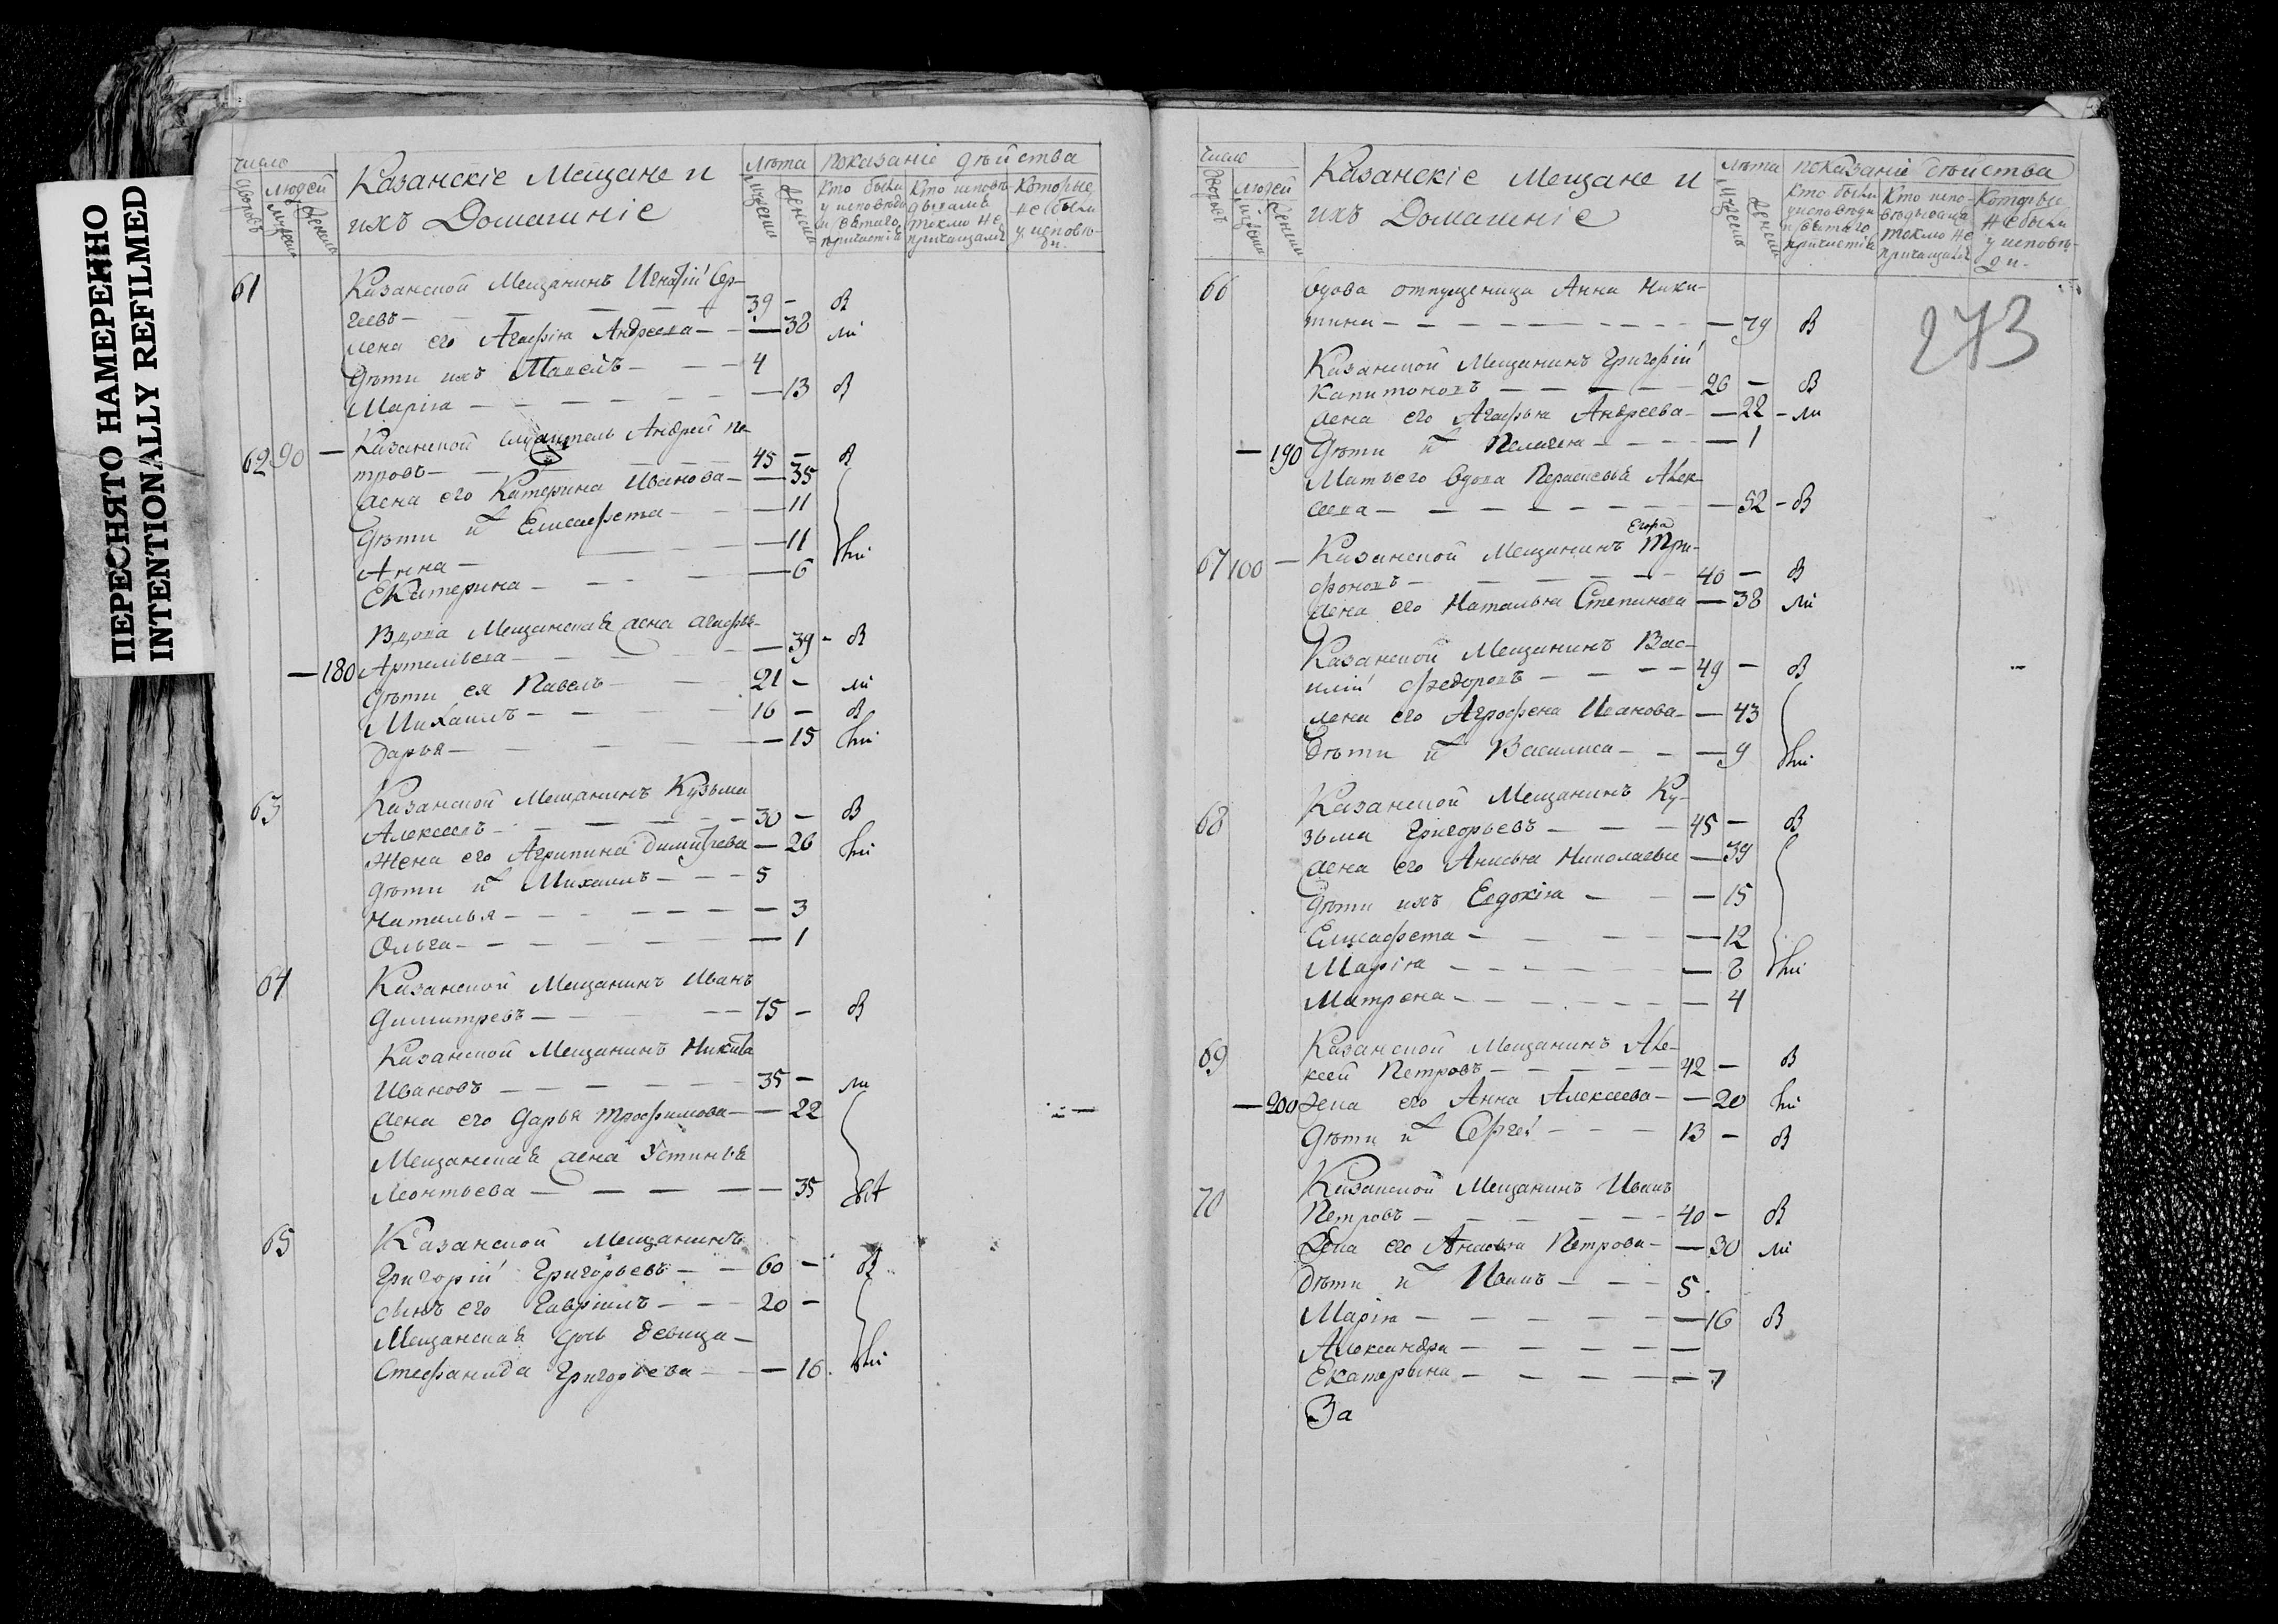 ПЕРЕСНЯТО НАМЕРЕННО
INTENTIONALLY REFILMED
число
дворовъ
людей
мужска
женска
Казанскіе Мещане и
ихъ Домашніе
лѣта
мужска
женска
показаніе дѣйства
кто были
у исповѣди
и святаго
причастія
Кто исповѣ-
дывался
токмо не
причащался
Которые
не были
у исповѣ-
ди
61
Казанской Мещанинъ Игнатій Сер-
геевъ — 39 —
жена его Агафія Андреева — 38
Дѣти ихъ — 4
Марія — 13
62 90 — Казанской Андрей Пе-
тровъ — 45 —
жена его Катерина Иванова — 35
Дѣти их Елисафета — 11
Анна — 11
Екатерина — 6
Вдова Мещанская жена Агафья
— 180 — 39
дѣти ея Павелъ — 21 —
Михаилъ — 16 —
Дарья — 15
63
Казанской Мещанинъ Кузьма
Алексеевъ — 30 —
Жена его Агрипина Димитрева — 26
дѣти их Михаилъ — 5
Наталья — 3
Ольга — 1
64
Казанской Мещанинъ Иванъ
Димитревъ — 75 —
Казанской Мещанинъ Никита
Ивановъ — 35 —
жена его Дарья Трофимова — 22
Мещанская жена Устинья
Леонтьева — 35
65
Казанской Мещанинъ
Григорій Григорьевъ — 60 —
сынъ его Гавріилъ — 20 —
Мещанская дочь девица
Стефанида Григорьева — 16
число
дворовъ
людей
мужска
женска
Казанскіе Мещане и
ихъ Домашніе
лѣта
мужска
женска
показаніе дѣйства
кто были
у исповѣди
и святаго
причастія
Кто испо-
вѣдывался
токмо не
причащался
Которые
не были
у исповѣ-
ди
273
66
вдова отпущеница Анна Ники-
тина — 79
Казанской Мещанинъ Григорій
Капитоновъ — 26 —
жена его Агафья Андреева — 22
— 190 Дѣти их Пелагея — 1
Мать его вдова Алек-
сеева — 52
Егоръ
67 100 — Казанской Мещанинъ Три-
фоновъ — 40 —
жена его Наталья Степанова — 38
Казанской Мещанинъ Вас-
илій Федоровъ — 49 —
жена его Агрофена Иванова — 43
Дѣти их Василиса — 9
68
Казанской Мещанинъ Ку-
зьма Григорьевъ — 45 —
жена его Анисья Николаева — 39
Дѣти ихъ Евдокія — 15
Елисафета — 12
Марія — 8
Матрена — 4
69
Казанской Мещанинъ Але-
ксей Петровъ — 42 —
— 200 жена его Анна Алексеева — 20
Дѣти их Сергей — 13 —
70
Казанской Мещанинъ Иванъ
Петровъ — 40 —
жена его Анисья Петрова — 30
Дѣти их Иванъ — 5
Марія — 16
Александра —
Екатерина — 7
За